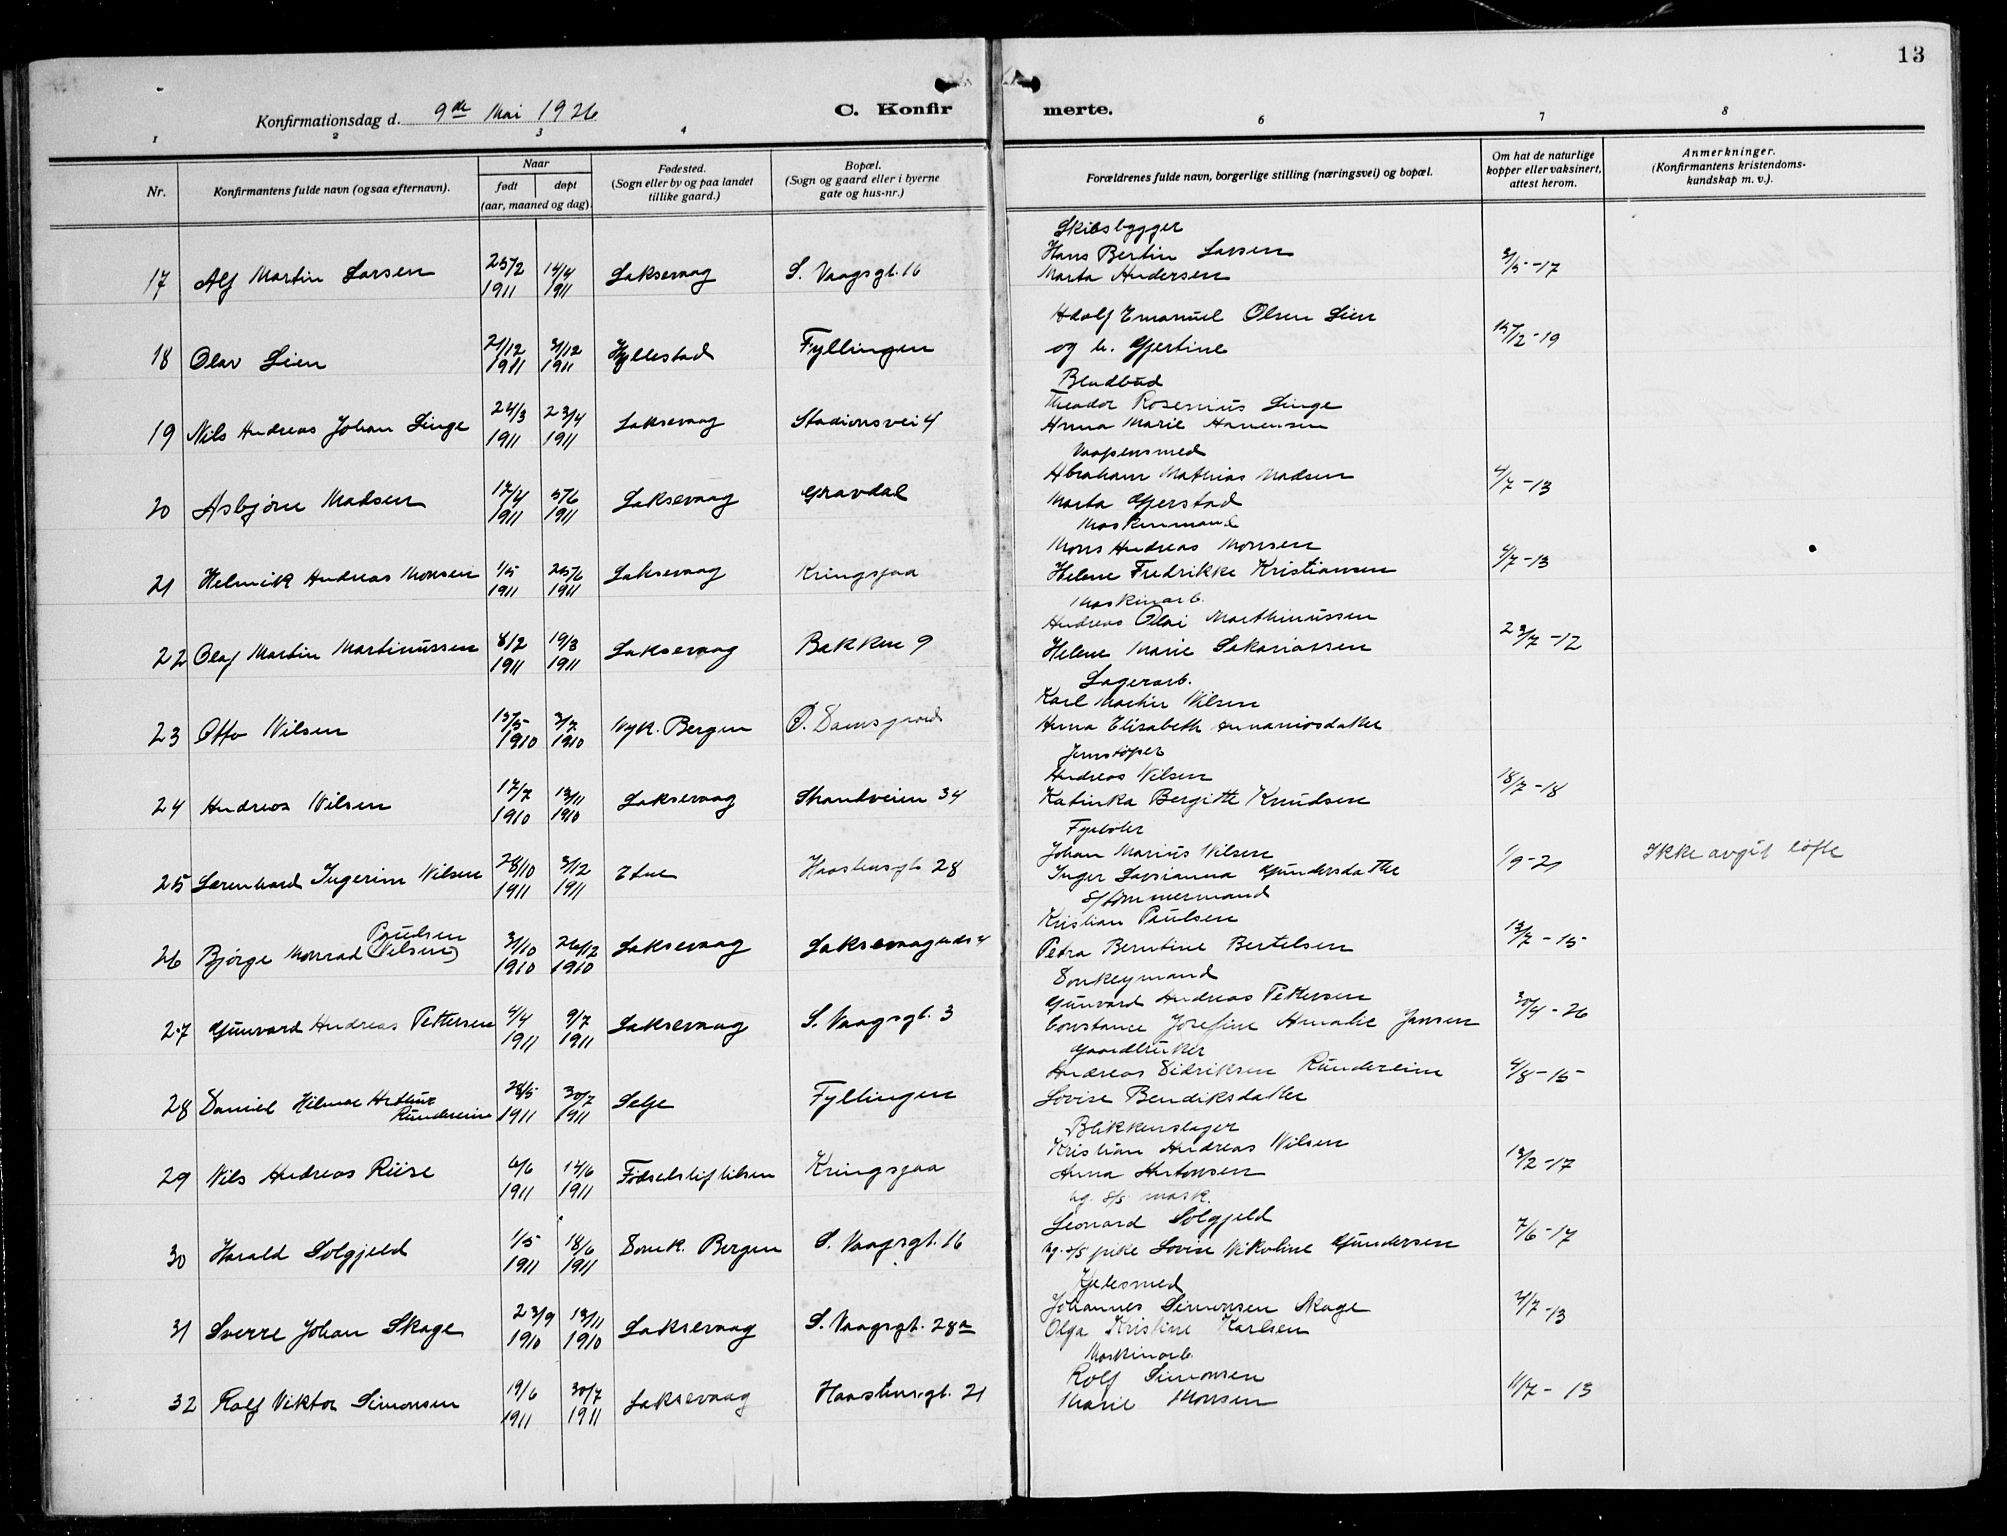 13
Konfirmationsdag d. 9de Mai 1926
C. Konfirmerte.
1 2 3 4 6 7 8
Nr.
Konfirmantens fulde navn (ogsaa efternavn).
Naar
født døpt
(aar, maaned og dag).
Fødested.
(Sogn eller by og paa landet
tillike gaard.)
Bopæl.
(Sogn og gaard eller i byerne
gate og hus-nr.)
Forældrenes fulde navn, borgerlige stilling (næringsvei) og bopæl.
Om hat de naturlige
kopper eller vaksinert,
attest herom.
Anmerkninger.
(Konfirmantens kristendoms-
kundskap m. v.).
Skibsbygger
17 Alf Martin Larsen 25/2 1911 14/4 1911 Laksevaag S. Vaagsgt. 16
Hans Bertin Larsen
Marta Andersen
3/5-17
18 Olav Lien 21/12 1911 31/12 1911 Hyllestad Fyllingen
Adolf Emanuel Olsen Lien
og h. Gjertine
15/12-19
19 Nils Andreas Johan Linge 24/3 1911 23/4 1911 Laksevaag Stadionsvei 4
Theodor Rosenius Linge
Anna Marie
Vaapensmed
20 Asbjørn Madsen 17/4 1911 5/6 1911 Laksevaag Gravdal
Abraham Mathias Madsen
Marta Gjerstad
4/7-13
Maskinmand
21 Helmik Andreas Monsen 1/5 1911 25/6 1911 Laksevaag Kringsjaa
Mons Andreas Monsen
Helene Fredrikke Kristiansen
4/7-13
Maskinarb.
22 Olaf Martin Martinussen 8/2 1911 19/3 1911 Laksevaag Bakken 9
Andreas Olai Marthinussen
Helene Marie Sakariassen
23/7-12
Lagerarb.
23 Otto Nilsen 15/5 1910 3/7 1910 Nyk. Bergen Ø. Damsgaard
Karl Martin Nilsen
Anna Elisabeth Annaniasdatter
Jernstøper
24 Andreas Nilsen 17/7 1910 13/11 1910 Laksevaag Strandveien 34
Andreas Nilsen
Katinka Bergitte Knudsen
18/7-18
Fyrbøter
25 Lærenhard Ingerim Nilsen 28/10 1911 3/12 1911 Etne Haastensgt. 28
Johan Marius Nilsen
Inger Larsianna Gundersdatter
1/9-21
Ikke avgit løfte
S/S tømmermand
26 Bjørge Monrad Paulsen (Nilsen) 31/10 1910 26/12 1910 Laksevaag
Kristian Paulsen
Petra Berntine Bertelsen
13/7-15
Donkeymand
27 Gunvard Andreas Pettersen 4/4 1911 9/7 1911 Laksevaag S. Vaagsgt. 3
Gunvard Andreas Pettersen
Constance Josefine Amalie Jansen
30/4-26
Gaardbruker
28 Daniel Hilmar Arthur Rundereim 28/5 1911 30/7 1911 Selje Fyllingen
Andreas Didriksen Rundereim
Lovise Bendiksdatter
4/8-15
Blikkenslager
29 Nils Andreas Riise 6/6 1911 14/6 1911 Fødselstiftelsen Kringsjaa
Kristian Andreas Nilsen
Anna Antonsen
13/2-17
ug. s/s mask.
30 Harald Solgjeld 1/5 1911 18/6 1911 Domk. Bergen S. Vaagsgt. 16
Leonard Solgjeld
ug. s/s pike Lovise Nikoline Gundersen
7/6-17
Kjelesmed
31 Sverre Johan Skage 23/9 1910 13/11 1910 Laksevaag S. Vaagsgt. 28a
Johannes Simonsen Skage
Olga Kristine Karlsen
4/7-13
Maskinarb.
32 Rolf Viktor Simonsen 19/6 1911 30/7 1911 Laksevaag Haastensgt. 21
Rolf Simonsen
Marie Monsen
11/7-13